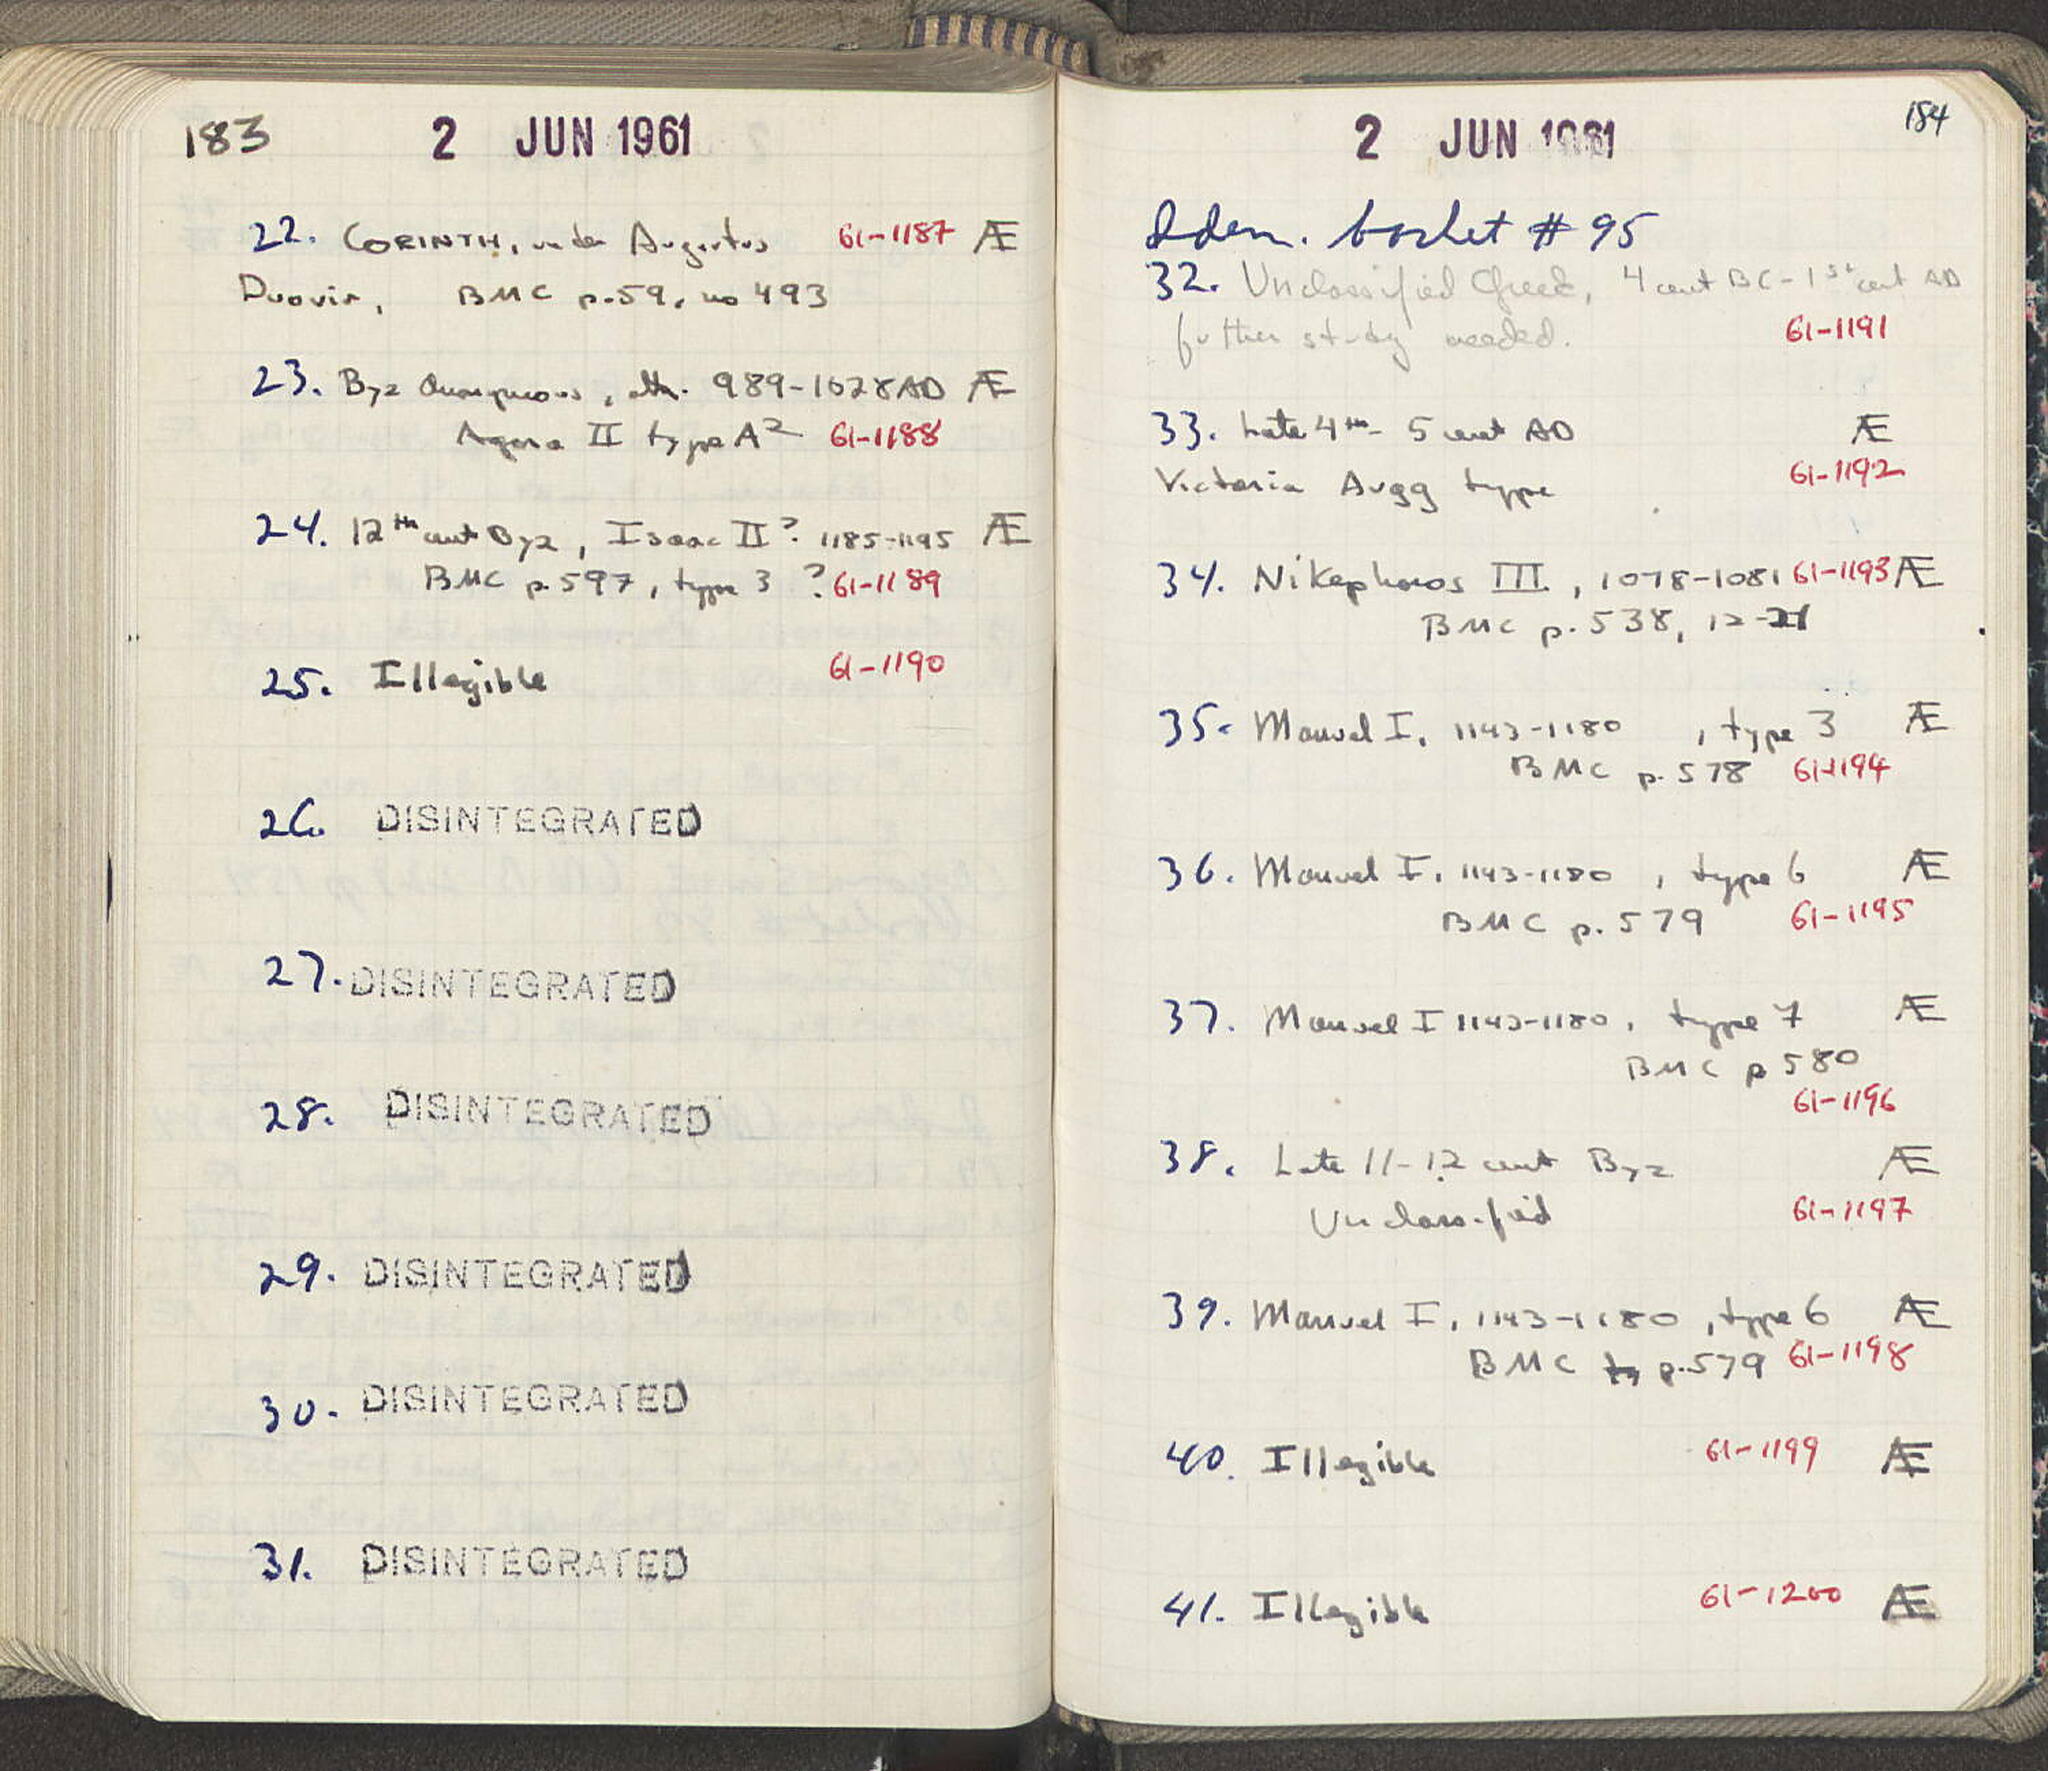 183
2 JUN 1961
22. CORINTH, under Augustus 61-1187 Æ
Duovir, BMC p.59, no 493
23. Byz Anonymous, attr. 989-1028 AD Æ
Agora II type A2 61-1188
24. 12th cent Byz, Isaac II? 1185-1195 Æ
BMC p.597, type 3 ? 61-1189
25. Illegible 61-1190
26. DISINTEGRATED
27. DISINTEGRATED
28. DISINTEGRATED
29. DISINTEGRATED
30. DISINTEGRATED
31. DISINTEGRATED
184
2 JUN 1961
Idem. basket # 95
32. Unclassified Greek, 4 cent BC - 1st cent AD
further study needed. 61-1191
33. Late 4th - 5 cent AD Æ
Victoria Augg type 61-1192
34. Nikephoros III, 1078-1081 61-1193 Æ
BMC p. 538, 12-21
35. Manuel I, 1143-1180, type 3 Æ
BMC p. 578 61-1194
36. Manuel I, 1143-1180, type 6 Æ
BMC p. 579 61-1195
37. Manuel I 1143-1180, type 7 Æ
BMC p 580
61-1196
38. Late 11-12 cent Byz Æ
Unclassified 61-1197
39. Manuel I, 1143-1180, type 6 Æ
BMC p.579 61-1198
40. Illegible 61-1199 Æ
41. Illegible 61-1200 Æ